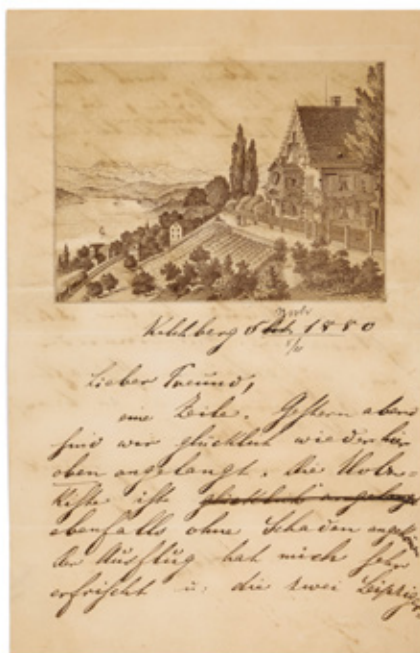 Kilchberg 5 Oct. 1880
Nov
5/11
Lieber Freund,
eine Zeile. Gestern abend
sind wir glücklich wieder hier
oben angelangt. die
Kiste ist glücklich angelangt
ebenfalls ohne Schaden
der Ausflug hat mich sehr
erfrischt u. die zwei Leipziger